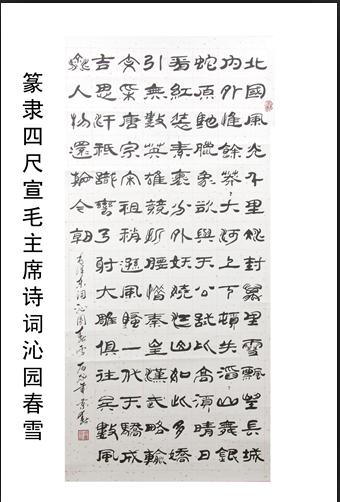 篆隶四尺宣毛主席诗词沁园春雪
北國風光千里冰封萬里雪飄望長城
内外惟餘莽〻大河上下頓失滔〻山舞銀
蛇原馳臘象欲與天公試比高須晴日
看紅裝素裹分外妖嬈江山如此多嬌
引無數英雄競折腰惜秦皇漢武略輸
文采唐宗宋祖稍遜風騷一代天驕成
吉思汗祇識彎弓射大雕俱往矣數風
流人物還看今朝
毛澤東詞沁園春雪